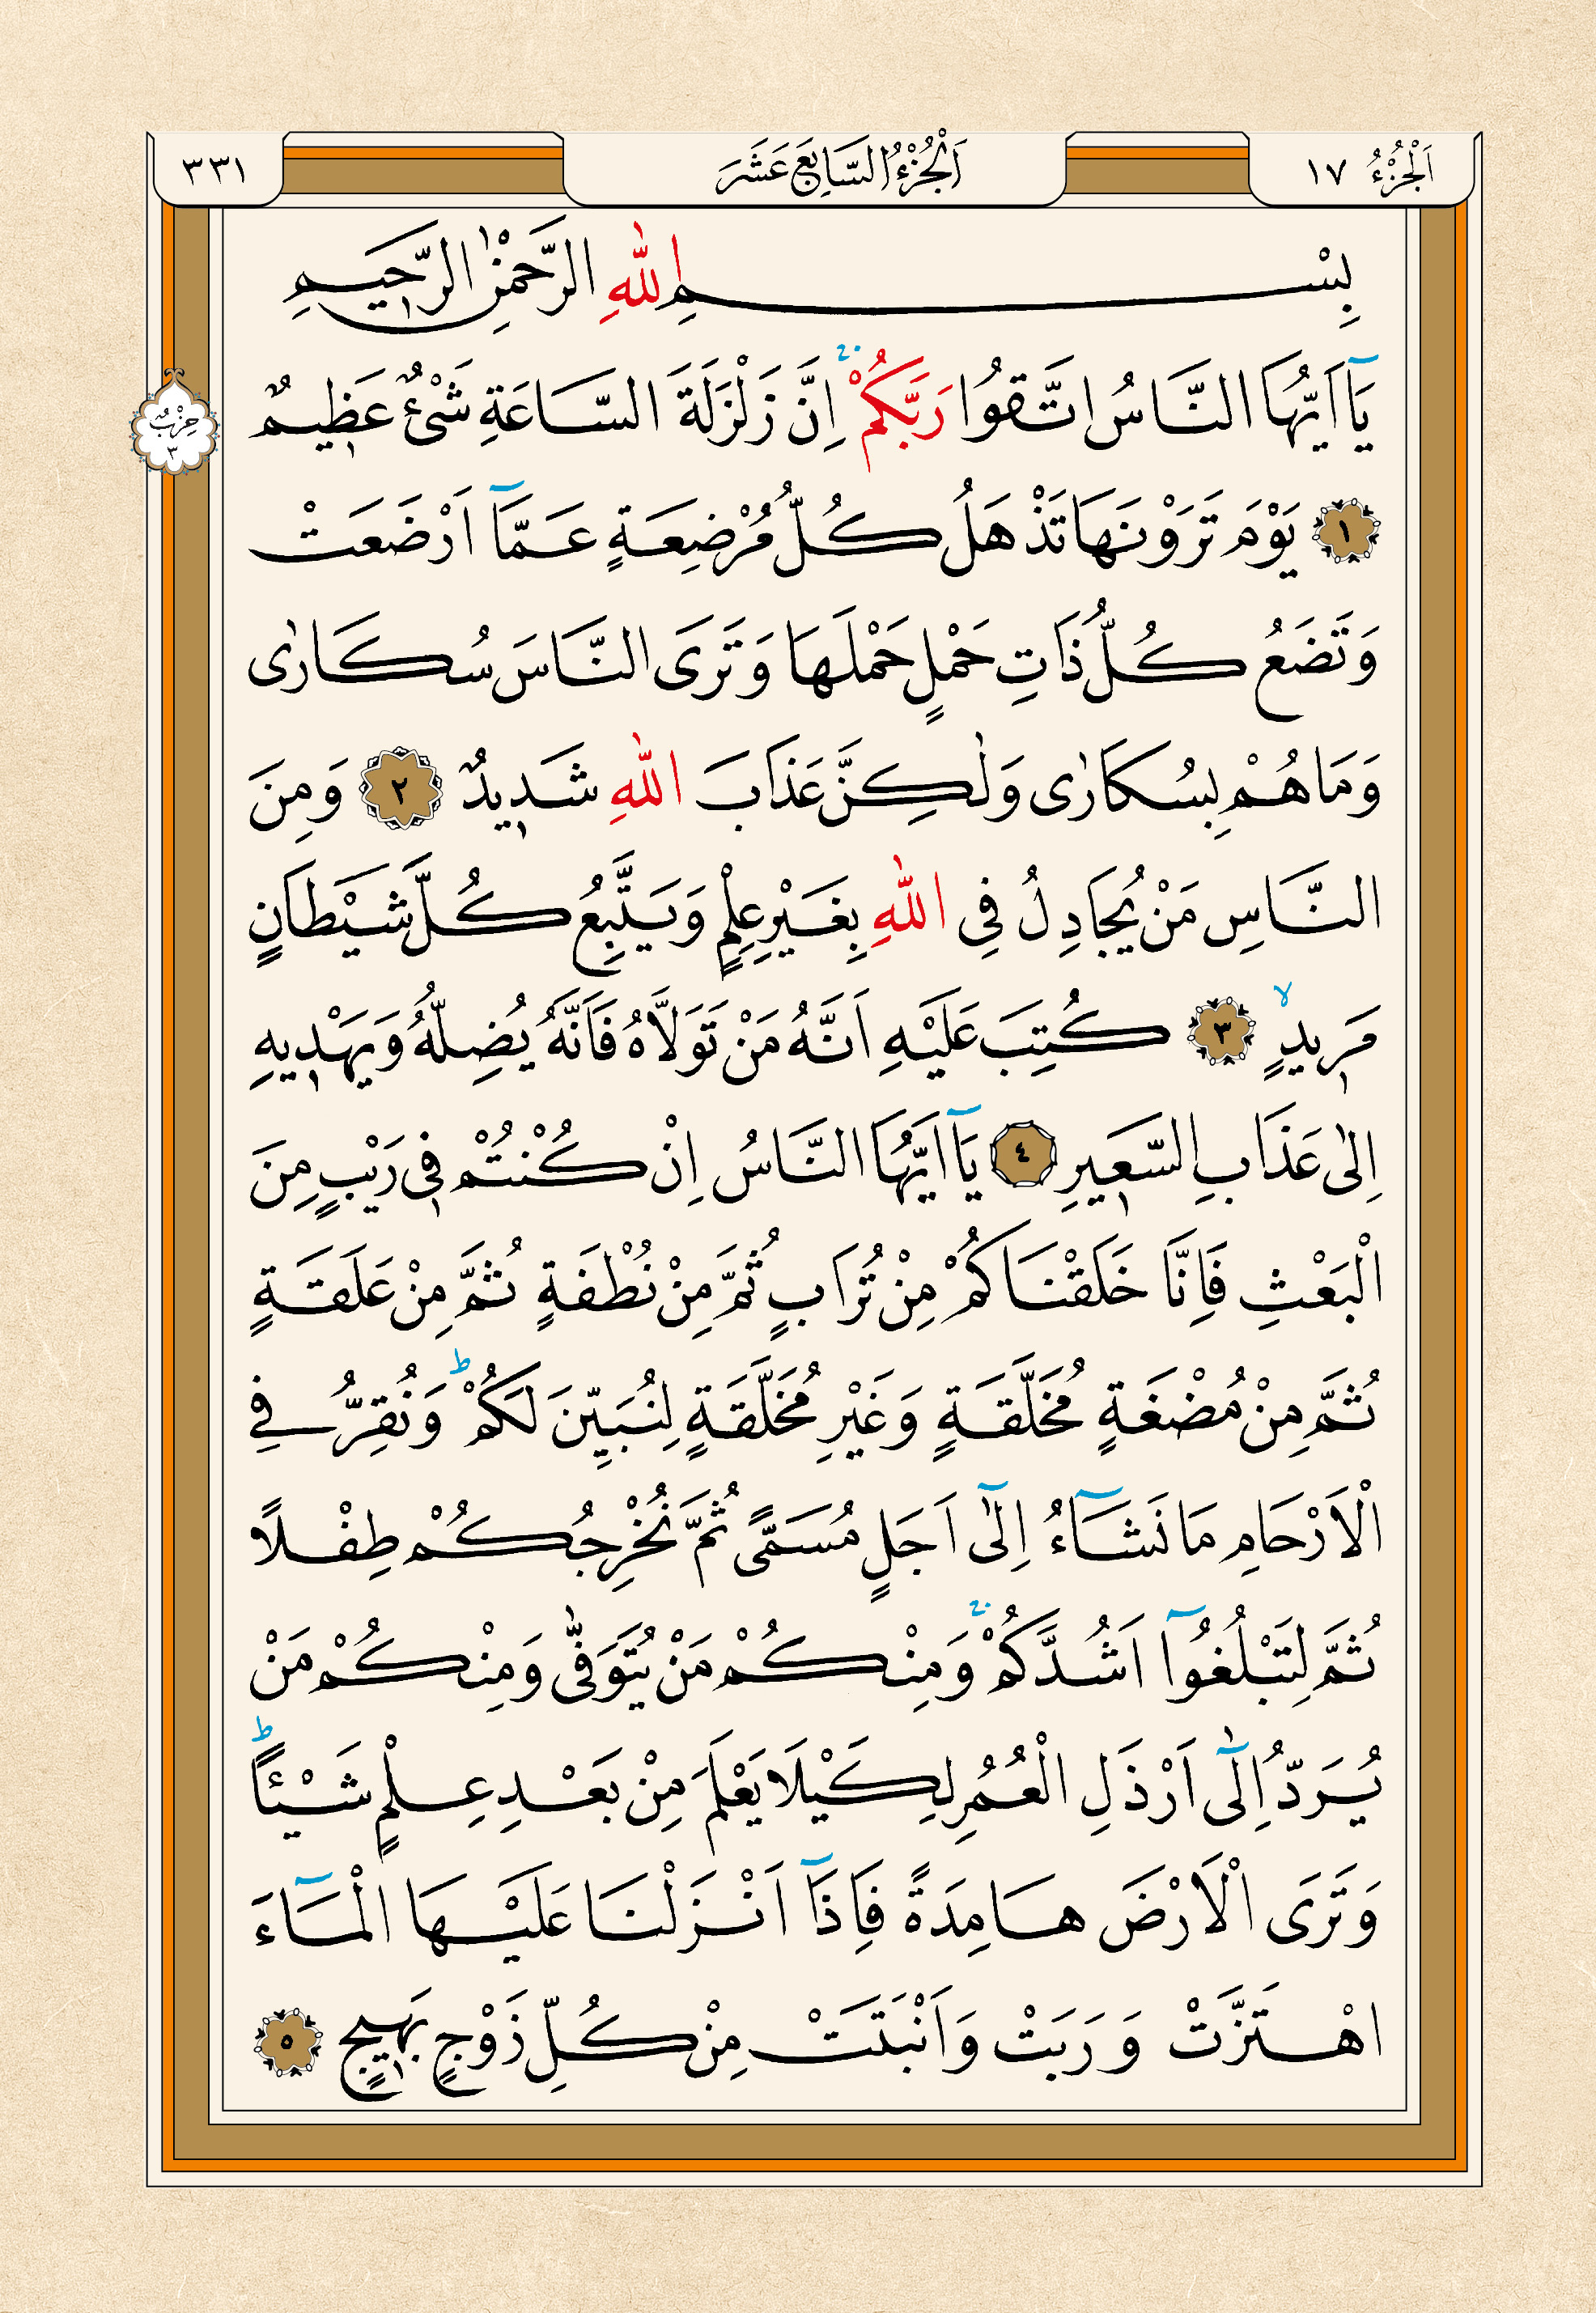 اَلْجُزْءُ ١٧
اَلْجُزْءُ السَّابِعَ عَشَرَ
٣٣١
بِسْمِ اللّٰهِ الرَّحْمٰنِ الرَّحِيمِ
يَٓا اَيُّهَا النَّاسُ اتَّقُوا رَبَّكُمْۚ اِنَّ زَلْزَلَةَ السَّاعَةِ شَيْءٌ عَظِيمٌ
حِزْبٌ
٣
١ يَوْمَ تَرَوْنَهَا تَذْهَلُ كُلُّ مُرْضِعَةٍ عَمَّٓا اَرْضَعَتْ
وَتَضَعُ كُلُّ ذَاتِ حَمْلٍ حَمْلَهَا وَتَرَى النَّاسَ سُكَارٰى
وَمَا هُمْ بِسُكَارٰى وَلٰكِنَّ عَذَابَ اللّٰهِ شَدِيدٌ ٢ وَمِنَ
النَّاسِ مَنْ يُجَادِلُ فِي اللّٰهِ بِغَيْرِ عِلْمٍ وَيَتَّبِعُ كُلَّ شَيْطَانٍ
مَرِيدٍۙ ٣ كُتِبَ عَلَيْهِ اَنَّهُ مَنْ تَوَلَّاهُ فَاَنَّهُ يُضِلُّهُ وَيَهْدِيهِ
اِلٰى عَذَابِ السَّعِيرِ ٤ يَٓا اَيُّهَا النَّاسُ اِنْ كُنْتُمْ فِي رَيْبٍ مِنَ
الْبَعْثِ فَاِنَّا خَلَقْنَاكُمْ مِنْ تُرَابٍ ثُمَّ مِنْ نُطْفَةٍ ثُمَّ مِنْ عَلَقَةٍ
ثُمَّ مِنْ مُضْغَةٍ مُخَلَّقَةٍ وَغَيْرِ مُخَلَّقَةٍ لِنُبَيِّنَ لَكُمْۜ وَنُقِرُّ فِي
الْاَرْحَامِ مَا نَشَٓاءُ اِلٰٓى اَجَلٍ مُسَمًّى ثُمَّ نُخْرِجُكُمْ طِفْلًا
ثُمَّ لِتَبْلُغُٓوا اَشُدَّكُمْۚ وَمِنْكُمْ مَنْ يُتَوَفّٰى وَمِنْكُمْ مَنْ
يُرَدُّ اِلٰٓى اَرْذَلِ الْعُمُرِ لِكَيْلَا يَعْلَمَ مِنْ بَعْدِ عِلْمٍ شَيْـًٔاۜ
وَتَرَى الْاَرْضَ هَامِدَةً فَاِذَٓا اَنْزَلْنَا عَلَيْهَا الْمَٓاءَ
اهْتَزَّتْ وَرَبَتْ وَاَنْبَتَتْ مِنْ كُلِّ زَوْجٍ بَهِيجٍ ٥